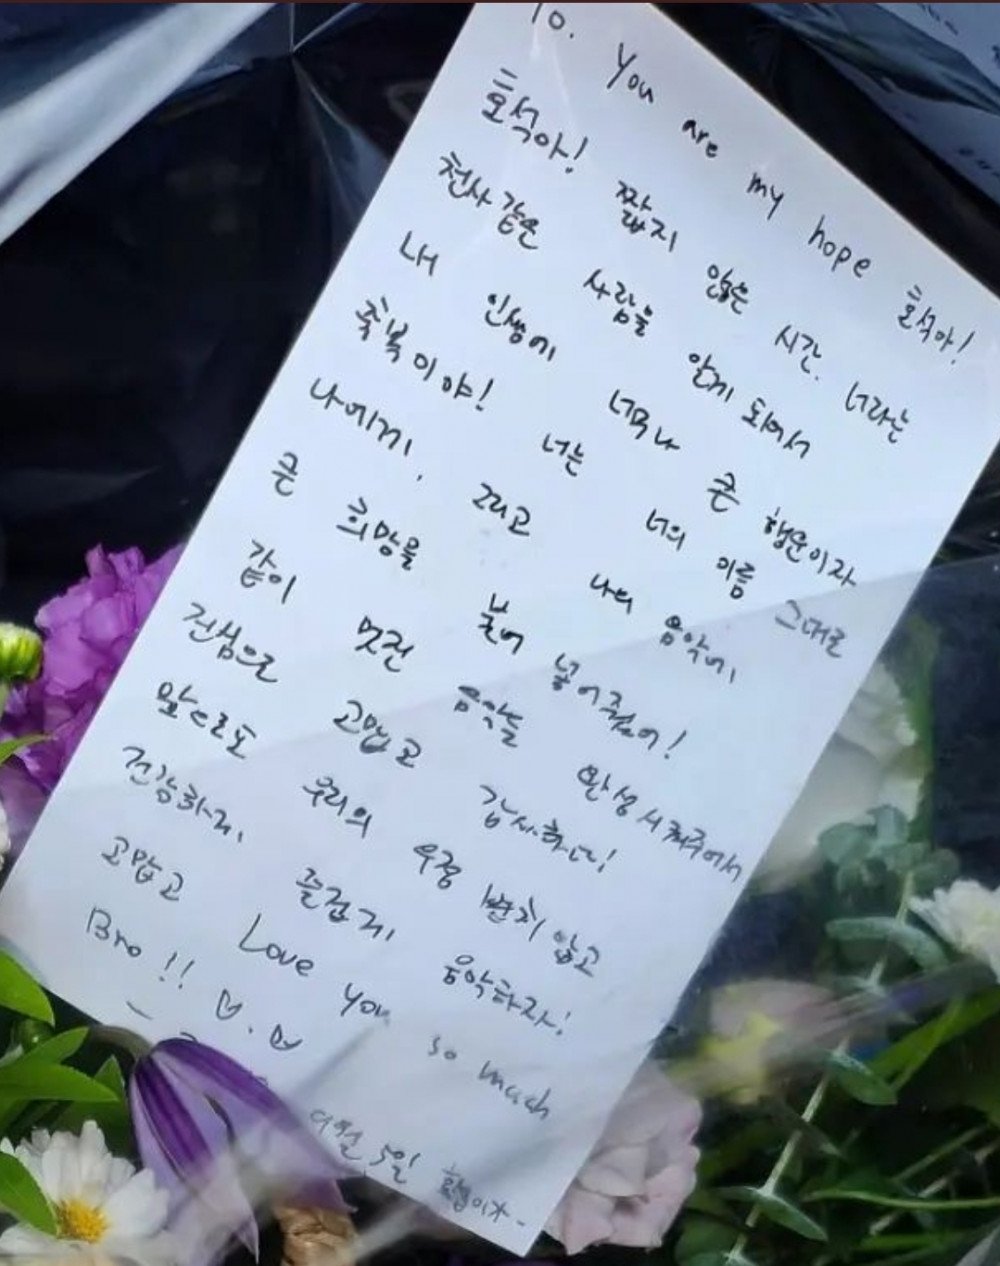 To. You are my hope 호석아!
호석아! 짧지 않은 시간. 너라는
천사 같은 사람을 알게 되어서
내 인생에 너무나 큰 행운이자
축복이야! 너는 너의 이름 그대로
나에게, 그리고 나의 음악에,
큰 희망을 불어 넣어줬어!
같이 멋진 음악을 완성시켜주어서
진심으로 고맙고 감사하다!
앞으로도 우리의 우정 변치 않고
건강하게, 즐겁게 음악하자!
고맙고 Love you so much
Bro!!
5일 형이가-